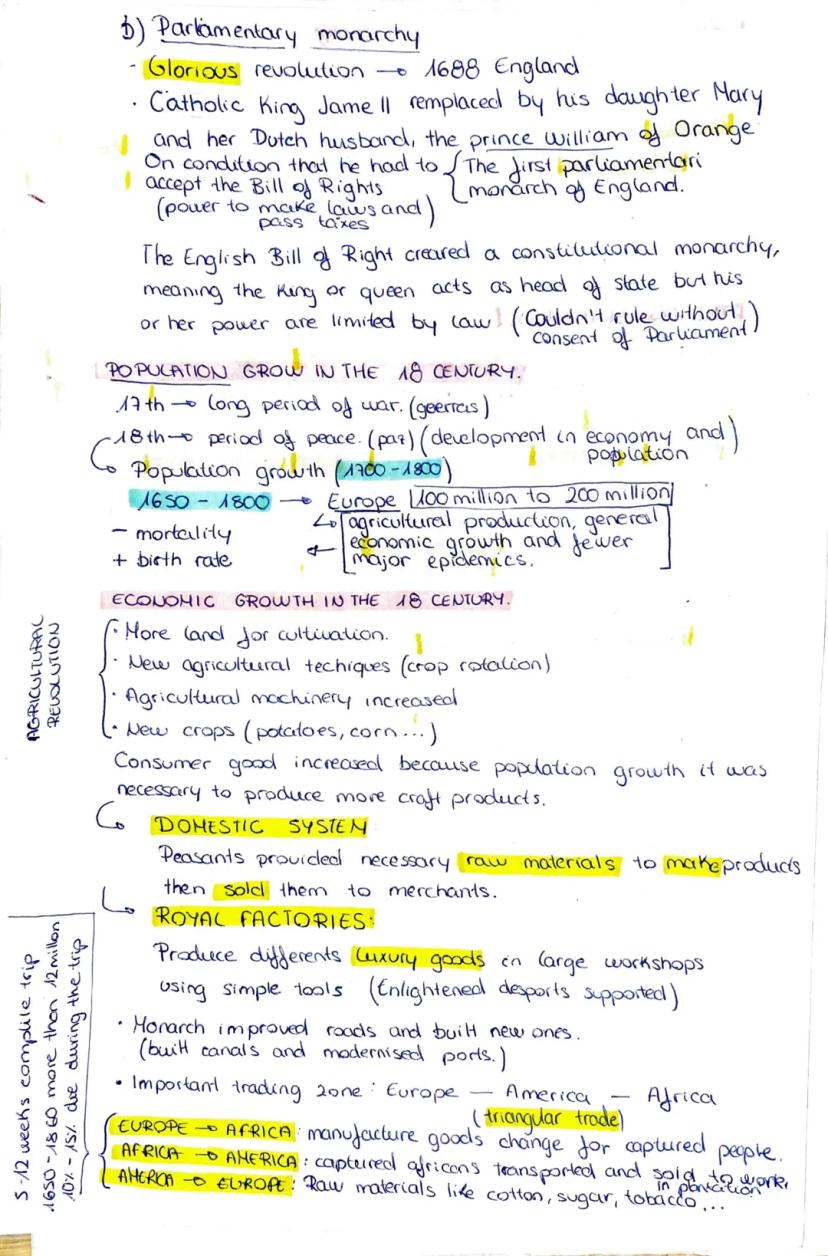 b) Parlamentary monarchy
· Glorious revolution → 1688 England
· Catholic King Jame II remplaced by his daughter Mary
and her Dutch husband, the prince william of Orange
On condition that he had to
accept the Bill of Rights
(power to make laws and)
pass taxes
The first parliamentari
monarch of England.
The English Bill of Right creared a constitutional monarchy,
meaning the King or queen acts as head of state but his
or her power are limited by law (Couldn't rule without
consent of Parliament)
POPULATION GROW IN THE 18 CENTURY.
17th → long period of war. (geerras)
18th → period of peace. (paz) (development in economy and)
population
↳ Population growth (1700-1800)
1650 - 1800 → Europe 100 million to 200 million
- mortality
+ birth rate
↳ agricultural production, general
← economic growth and fewer
major epidemics.
ECONOMIC GROWTH IN THE 18 CENTURY.
AGRICULTURAL
REVOLUTION
· More land for cultivation.
· New agricultural techiques (crop rotation)
· Agricultural machinery increased
· New crops (potatoes, corn...)
Consumer good increased because population growth it was
necessary to produce more craft products.
↳ DOMESTIC SYSTEM
Peasants provided necessary raw materials to make products
then sold them to merchants.
↳ ROYAL FACTORIES:
Produce differents luxury goods in large workshops
using simple tools (Enlightened desports supported)
· Monarch improved roads and built new ones.
(built canals and modernised ports.)
· Important trading zone: Europe — America — Africa
(triangular trade)
EUROPE → AFRICA: manufacture goods change for captured people.
AFRICA → AMERICA: captured africans transported and sold to work
in plantation
AMERICA → EUROPE: Raw materials like cotton, sugar, tobacco...
5-12 weeks complile trip
1650-1860 more then 12 millon
10% - 15% die during the trip